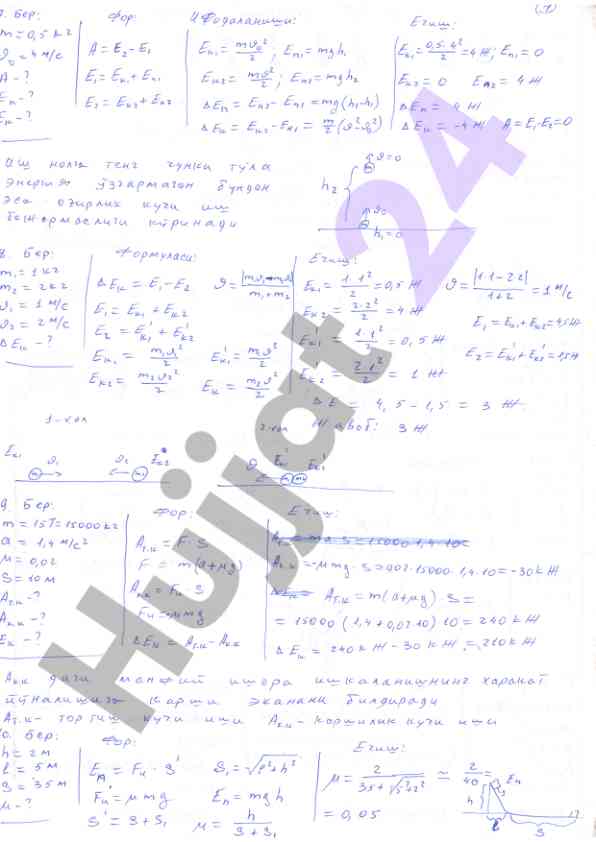 (9)
7. Бер: Фор: Ифодаланиши: Ечиш:
m = 0,5 кг
ϑ₀ = 4 м/с
A - ?
Eп - ?
Eк - ?
A = E₂ - E₁
E₁ = Eк₁ + Eп₁
E₂ = Eк₂ + Eп₂
Eк₁ = mϑ₀²/2 ; Eп₁ = mgh₁
Eк₂ = mϑ²/2 ; Eп₂ = mgh₂
ΔEп = Eп₂ - Eп₁ = mg(h₂-h₁)
ΔEк = Eк₂ - Eк₁ = m/2 (ϑ²-ϑ₀²)
Eк₁ = 0,5·4²/2 = 4Ж ; Eп₁ = 0
Eк₂ = 0 Eп₂ = 4Ж
ΔEп = 4Ж
ΔEк = -4Ж A = E₁-E₂ = 0
Иш нолга тенг чунки тўла
энергия ўзгармаган бундан
эса оғирлик кучи иш
бажармаслиги кўринади
h₂
ϑ=0
ϑ₀
h₁=0
8. Бер: Формуласи: Ечиш:
m₁ = 1 кг
m₂ = 2 кг
ϑ₁ = 1 м/с
ϑ₂ = 2 м/с
ΔEк - ?
ΔEк = E₁ - E₂ ϑ = |m₁ϑ₁-m₂ϑ₂|/m₁+m₂
E₁ = Eк₁ + Eк₂
E₂ = E'к₁ + E'к₂
Eк₁ = m₁ϑ₁²/2 E'к₁ = m₁ϑ²/2
Eк₂ = m₂ϑ₂²/2 E'к = m₂ϑ²/2
Eк₁ = 1·1²/2 = 0,5Ж ϑ = |1·1-2·2|/1+2 = 1 м/с
Eк₂ = 2·2²/2 = 4Ж
E₁ = Eк₁+Eк₂ = 4,5Ж
E'к₁ = 1·1²/2 = 0,5Ж
E₂ = E'к₁+E'к₂ = 1,5Ж
E'к₂ = 2·1²/2 = 1Ж
ΔE = 4,5 - 1,5 = 3Ж.
Жавоб: 3Ж
1-хол 2-хол
Eк₁ ϑ₁ ϑ₂ Eк₂
ϑ E'к E'к₁
9. Бер: Фор: Ечиш:
m = 15Т = 15000 кг
a = 1,4 м/с²
μ = 0,02
S = 10м
Aт.к - ?
Aк.к - ?
Eк - ?
Aт.к = F·S
F = m(a+μg)
Aк.к = Fи S
Fи = μmg
ΔEк = Aт.к - Aк.к
Aт.к = m a S = 15000·1,4·10=
Aк.к = -μmg·S = 0,02·15000·1,4·10 = -30кЖ
Aт.к = m(a+μg)·S =
= 15000(1,4+0,02·10)10 = 240кЖ
ΔEк = 240кЖ - 30кЖ = 210кЖ
Aк.к даги манфий ишора ишкаланишнинг харакат
йўналишига карши эканини билдиради
Aт.к- тортиш кучи иши Aк.к- каршилик кучи иши
10. Бер: Фор: Ечиш:
h = 2м
ℓ = 5м
S = 35м
μ - ?
Eп = Fи·S' S₁ = √ℓ²+h²
Fи = μmg Eп = mgh
S' = S+S₁ μ = h/S+S₁
μ = 2/35+√5²+2² ≈ 2/40 =
= 0,05
Eп
h S₁
ℓ S
Hujjat24